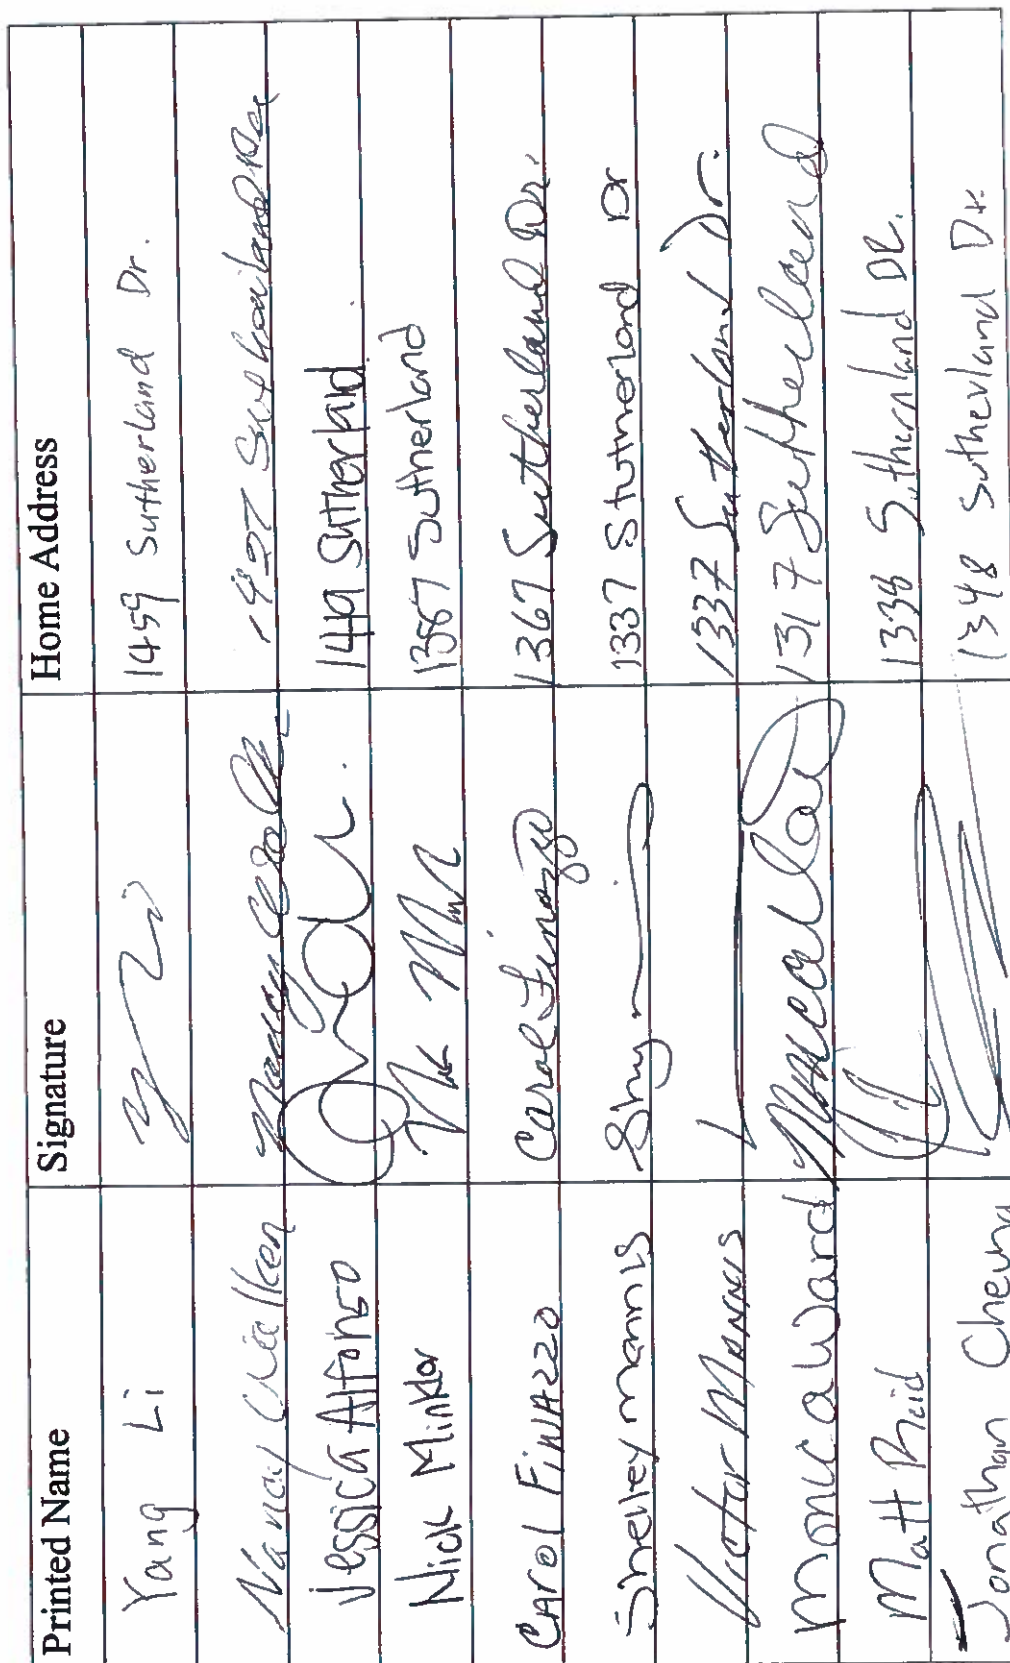 Printed Name Signature Home Address
Yang Li Y Li 1459 Sutherland Dr.
Nancy Nancy 1427
Jessica Alfonso 1449 Sutherland
Nick Minklor 1387 Sutherland
CAROl FiNAZZO Carol Finazzo 1367 Sutherland Dr.
Shelley mannis 1337 Stutherland Dr
Victor MANNIS 1337 Sutherland Dr.
monica Ward Monica Ward 1317 Sutherland
Matt Reid 1338 Sutherland DR.
Jonathan Cheung 1348 Sutherland Dr.